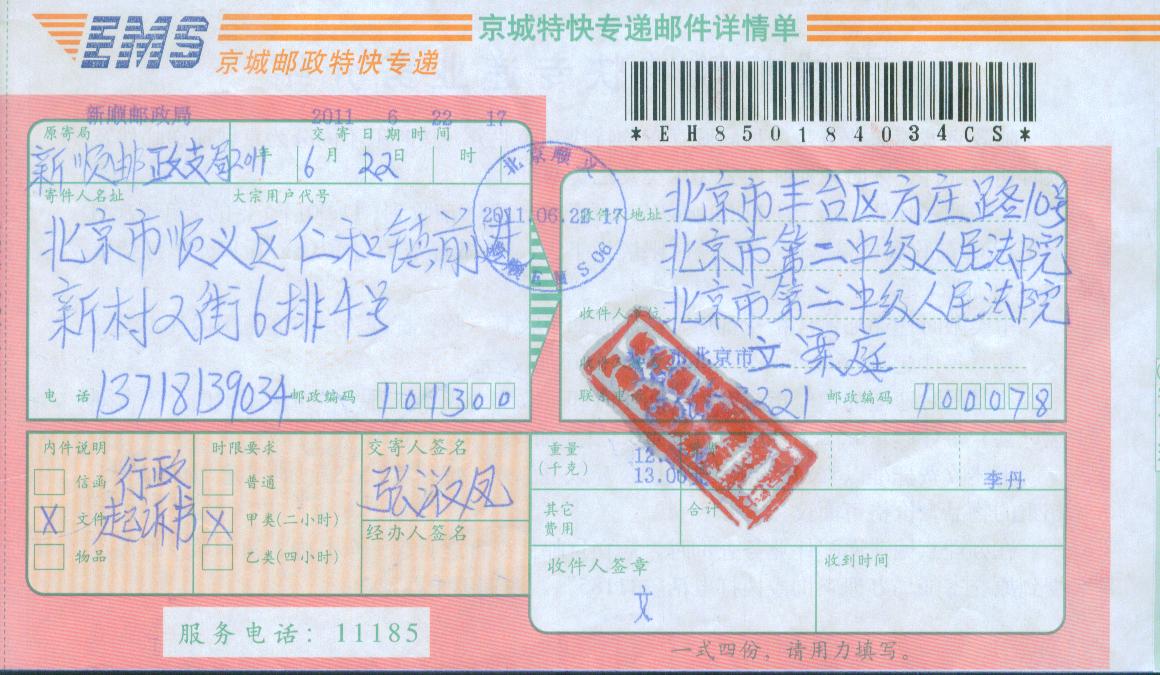 EMS 京城邮政特快专递
京城特快专递邮件详情单
*EH850184034CS*
新顺邮政局 2011 6 22 17
原寄局 交寄日期时间
新顺邮政支局 2011年 6月 22日 时
寄件人名址 大宗用户代号
北京市顺义区仁和镇前进
新村又街6排4号
电话 13718139034 邮政编码 101300
北京顺义
2011.06.22 17
收件人地址 北京市丰台区方庄路10号
北京市第二中级人民法院
收件人单位 北京市第二中级人民法院
北京市 立案庭
221 邮政编码 100078
内件说明
信函 行政
X 文件 起诉书
物品
时限要求
普通
X 甲类(二小时)
乙类(四小时)
交寄人签名
张淑凤
经办人签名
重量
(千克)
李丹
其它
费用
合计
收件人签章
文
收到时间
服务电话: 11185
一式四份,请用力填写。